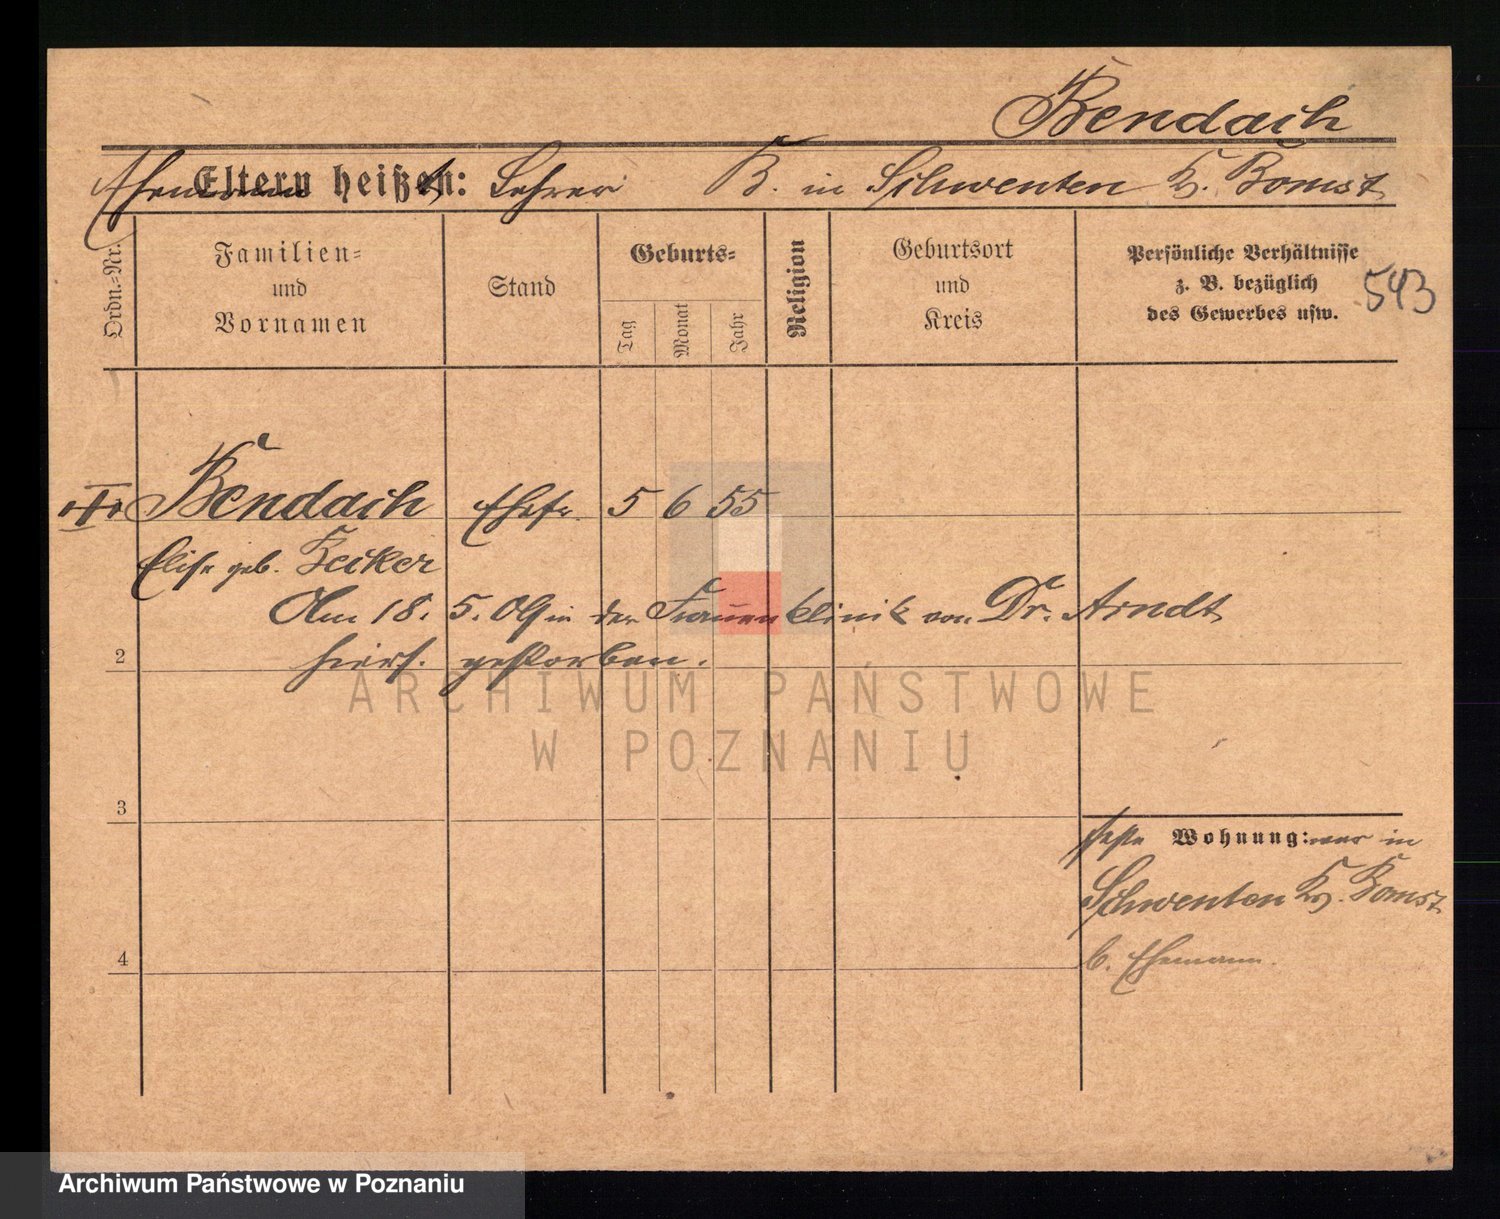 Bendach
Ehemann Eltern heißt: Lehrer B. in Schwenten Kr. Bomst
Ordn.-Nr.
Familien=
und
Vornamen
Stand
Geburts=
Tag
Monat
Jahr
Religion
Geburtsort
und
Kreis
Persönliche Verhältnisse
z. B. bezüglich
des Gewerbes usw.
543
Bendach Ehefr. 5 6 55
Elise geb. Zeiker
Am 18. 5. 09 in der Frauenklinik von Dr. Arndt
2
hiers. gestorben.
3
feste Wohnung: war in
Schwenten Kr. Bomst
4
b. Ehemann.
ARCHIWUM PAŃSTWOWE
W POZNANIU
Archiwum Państwowe w Poznaniu